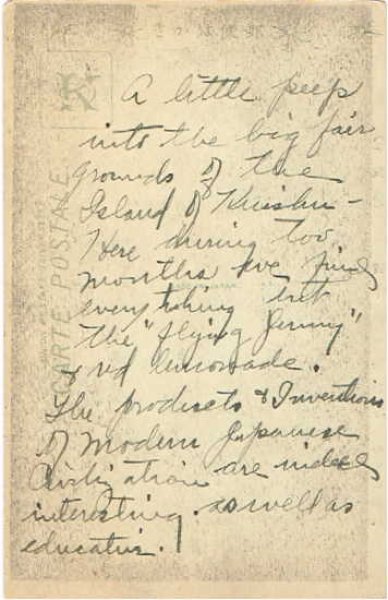 A little peep
into the big fair
grounds of the
Island of Kiushu -
Here during two
months we find
everything but
the "flying Jenny"
& red lemonade.
The products & Inventions
of Modern Japanese
Civilization are indeed
interesting as well as
educative.
CARTE POSTALE